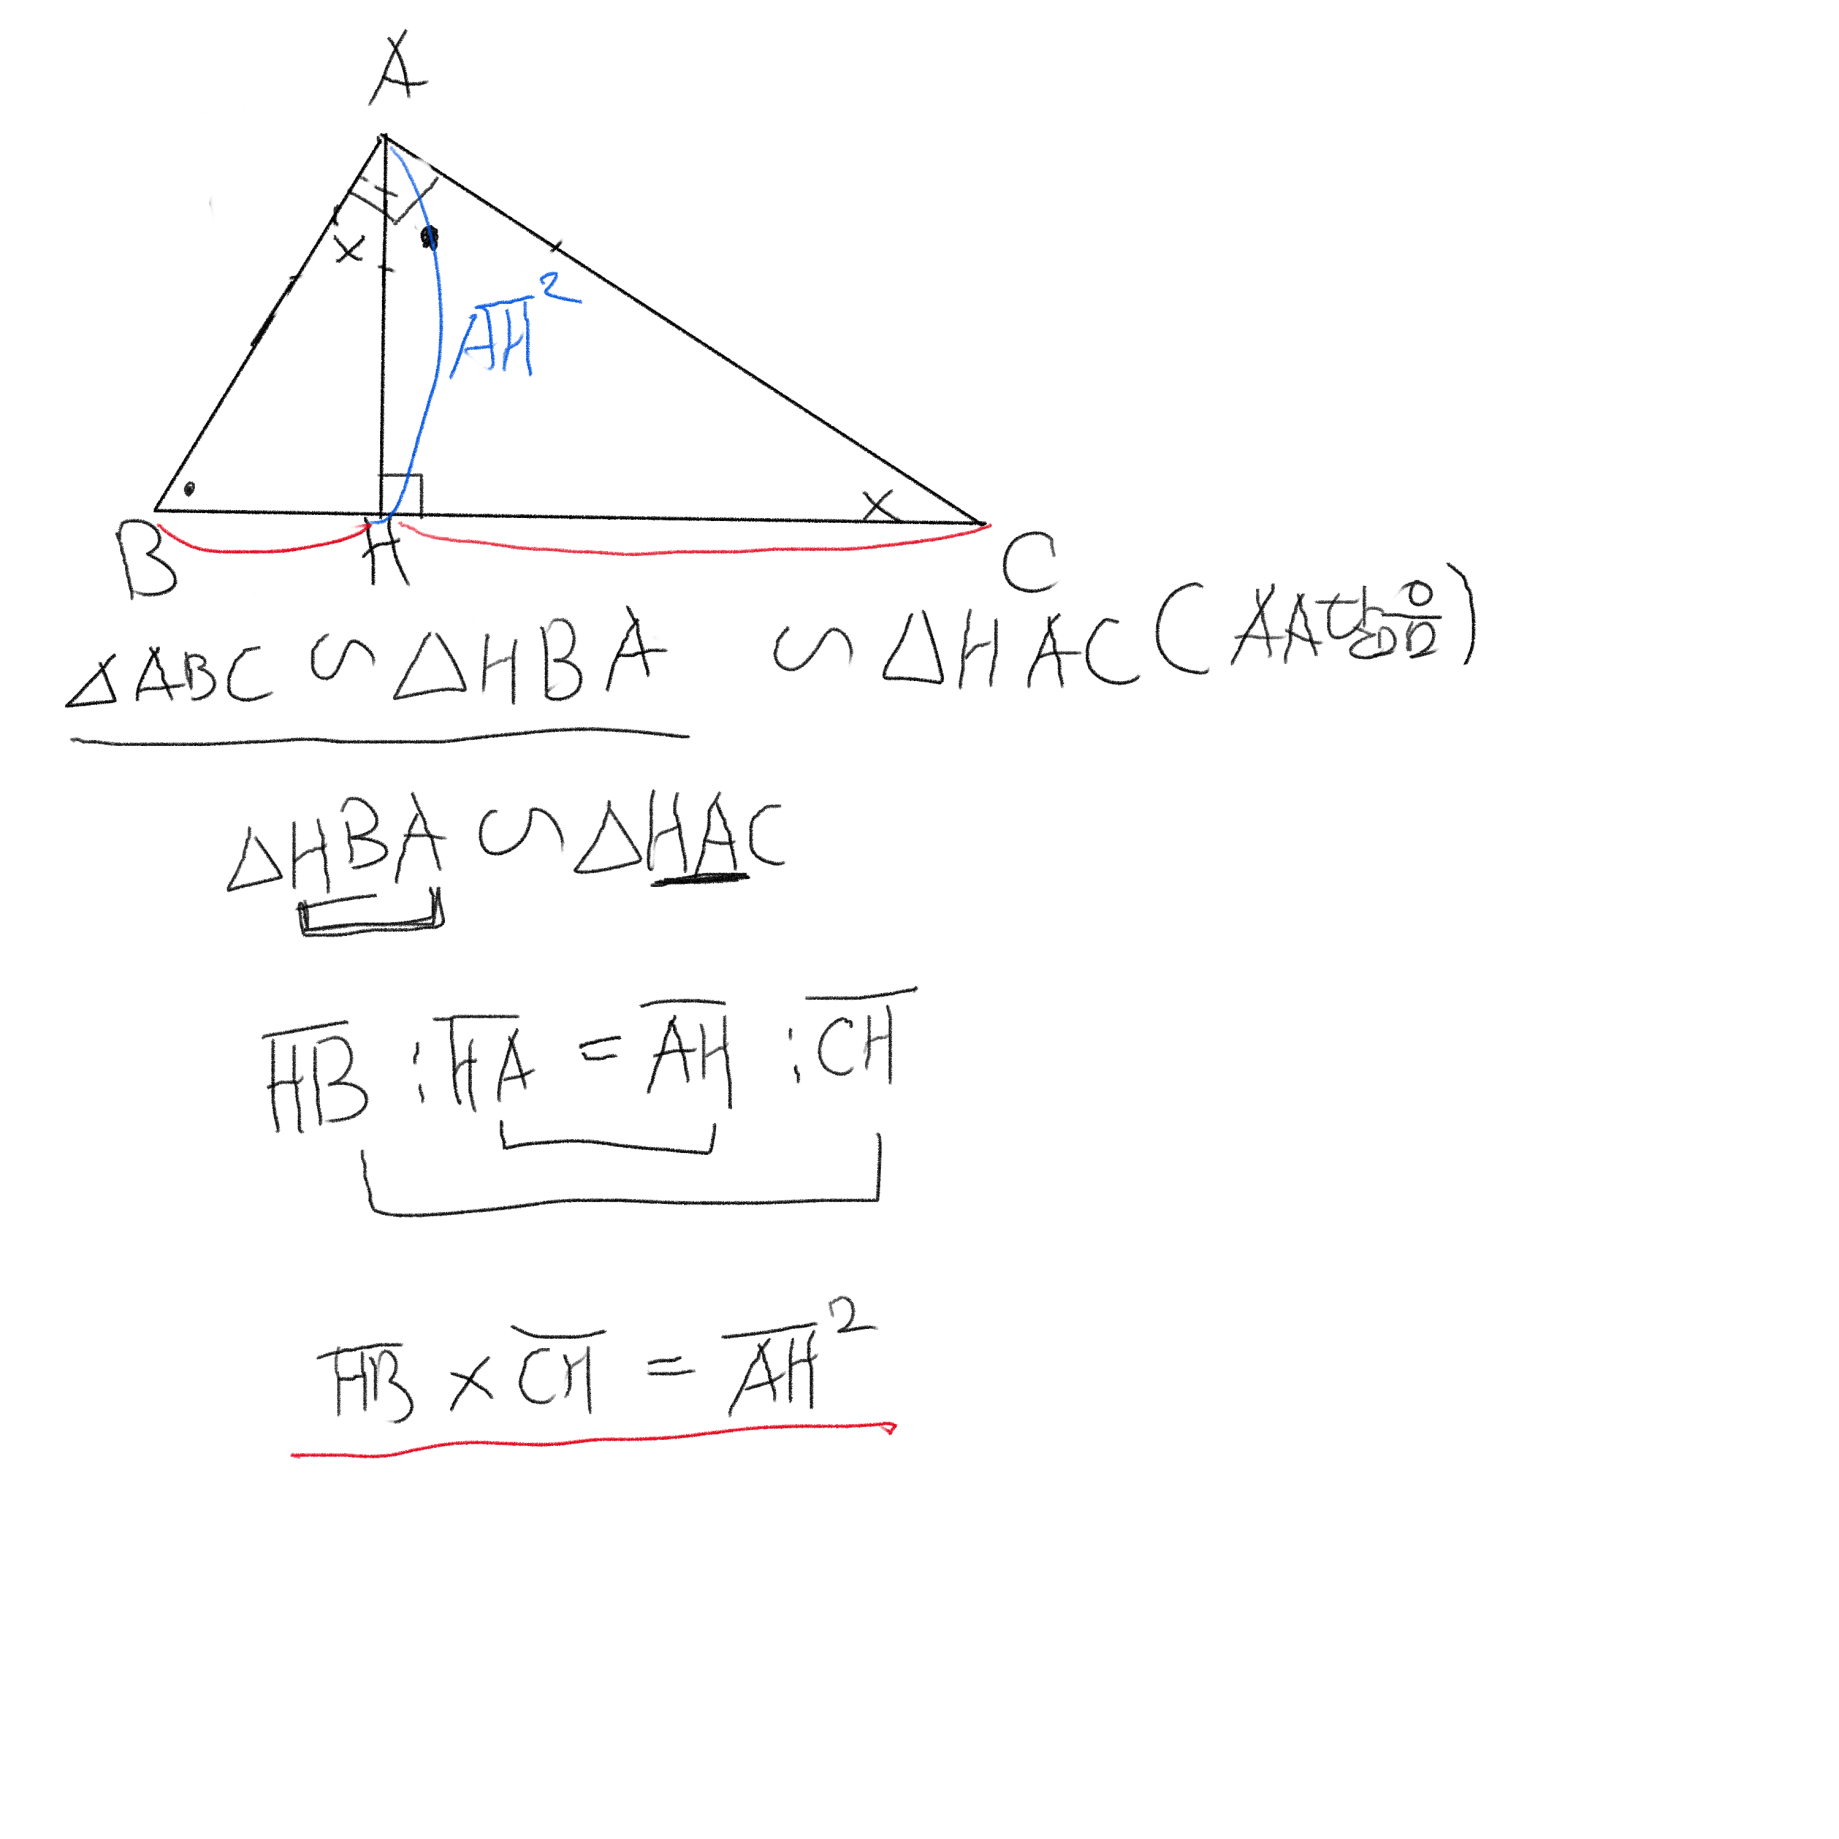 A
x
A̅H̅²
x
B
H
C
△ABC ∽ △HBA ∽ △HAC (AA닮음)
△HBA ∽ △HAC
H̅B̅ : H̅A̅ = A̅H̅ : C̅H̅
H̅B̅ × C̅H̅ = A̅H̅²